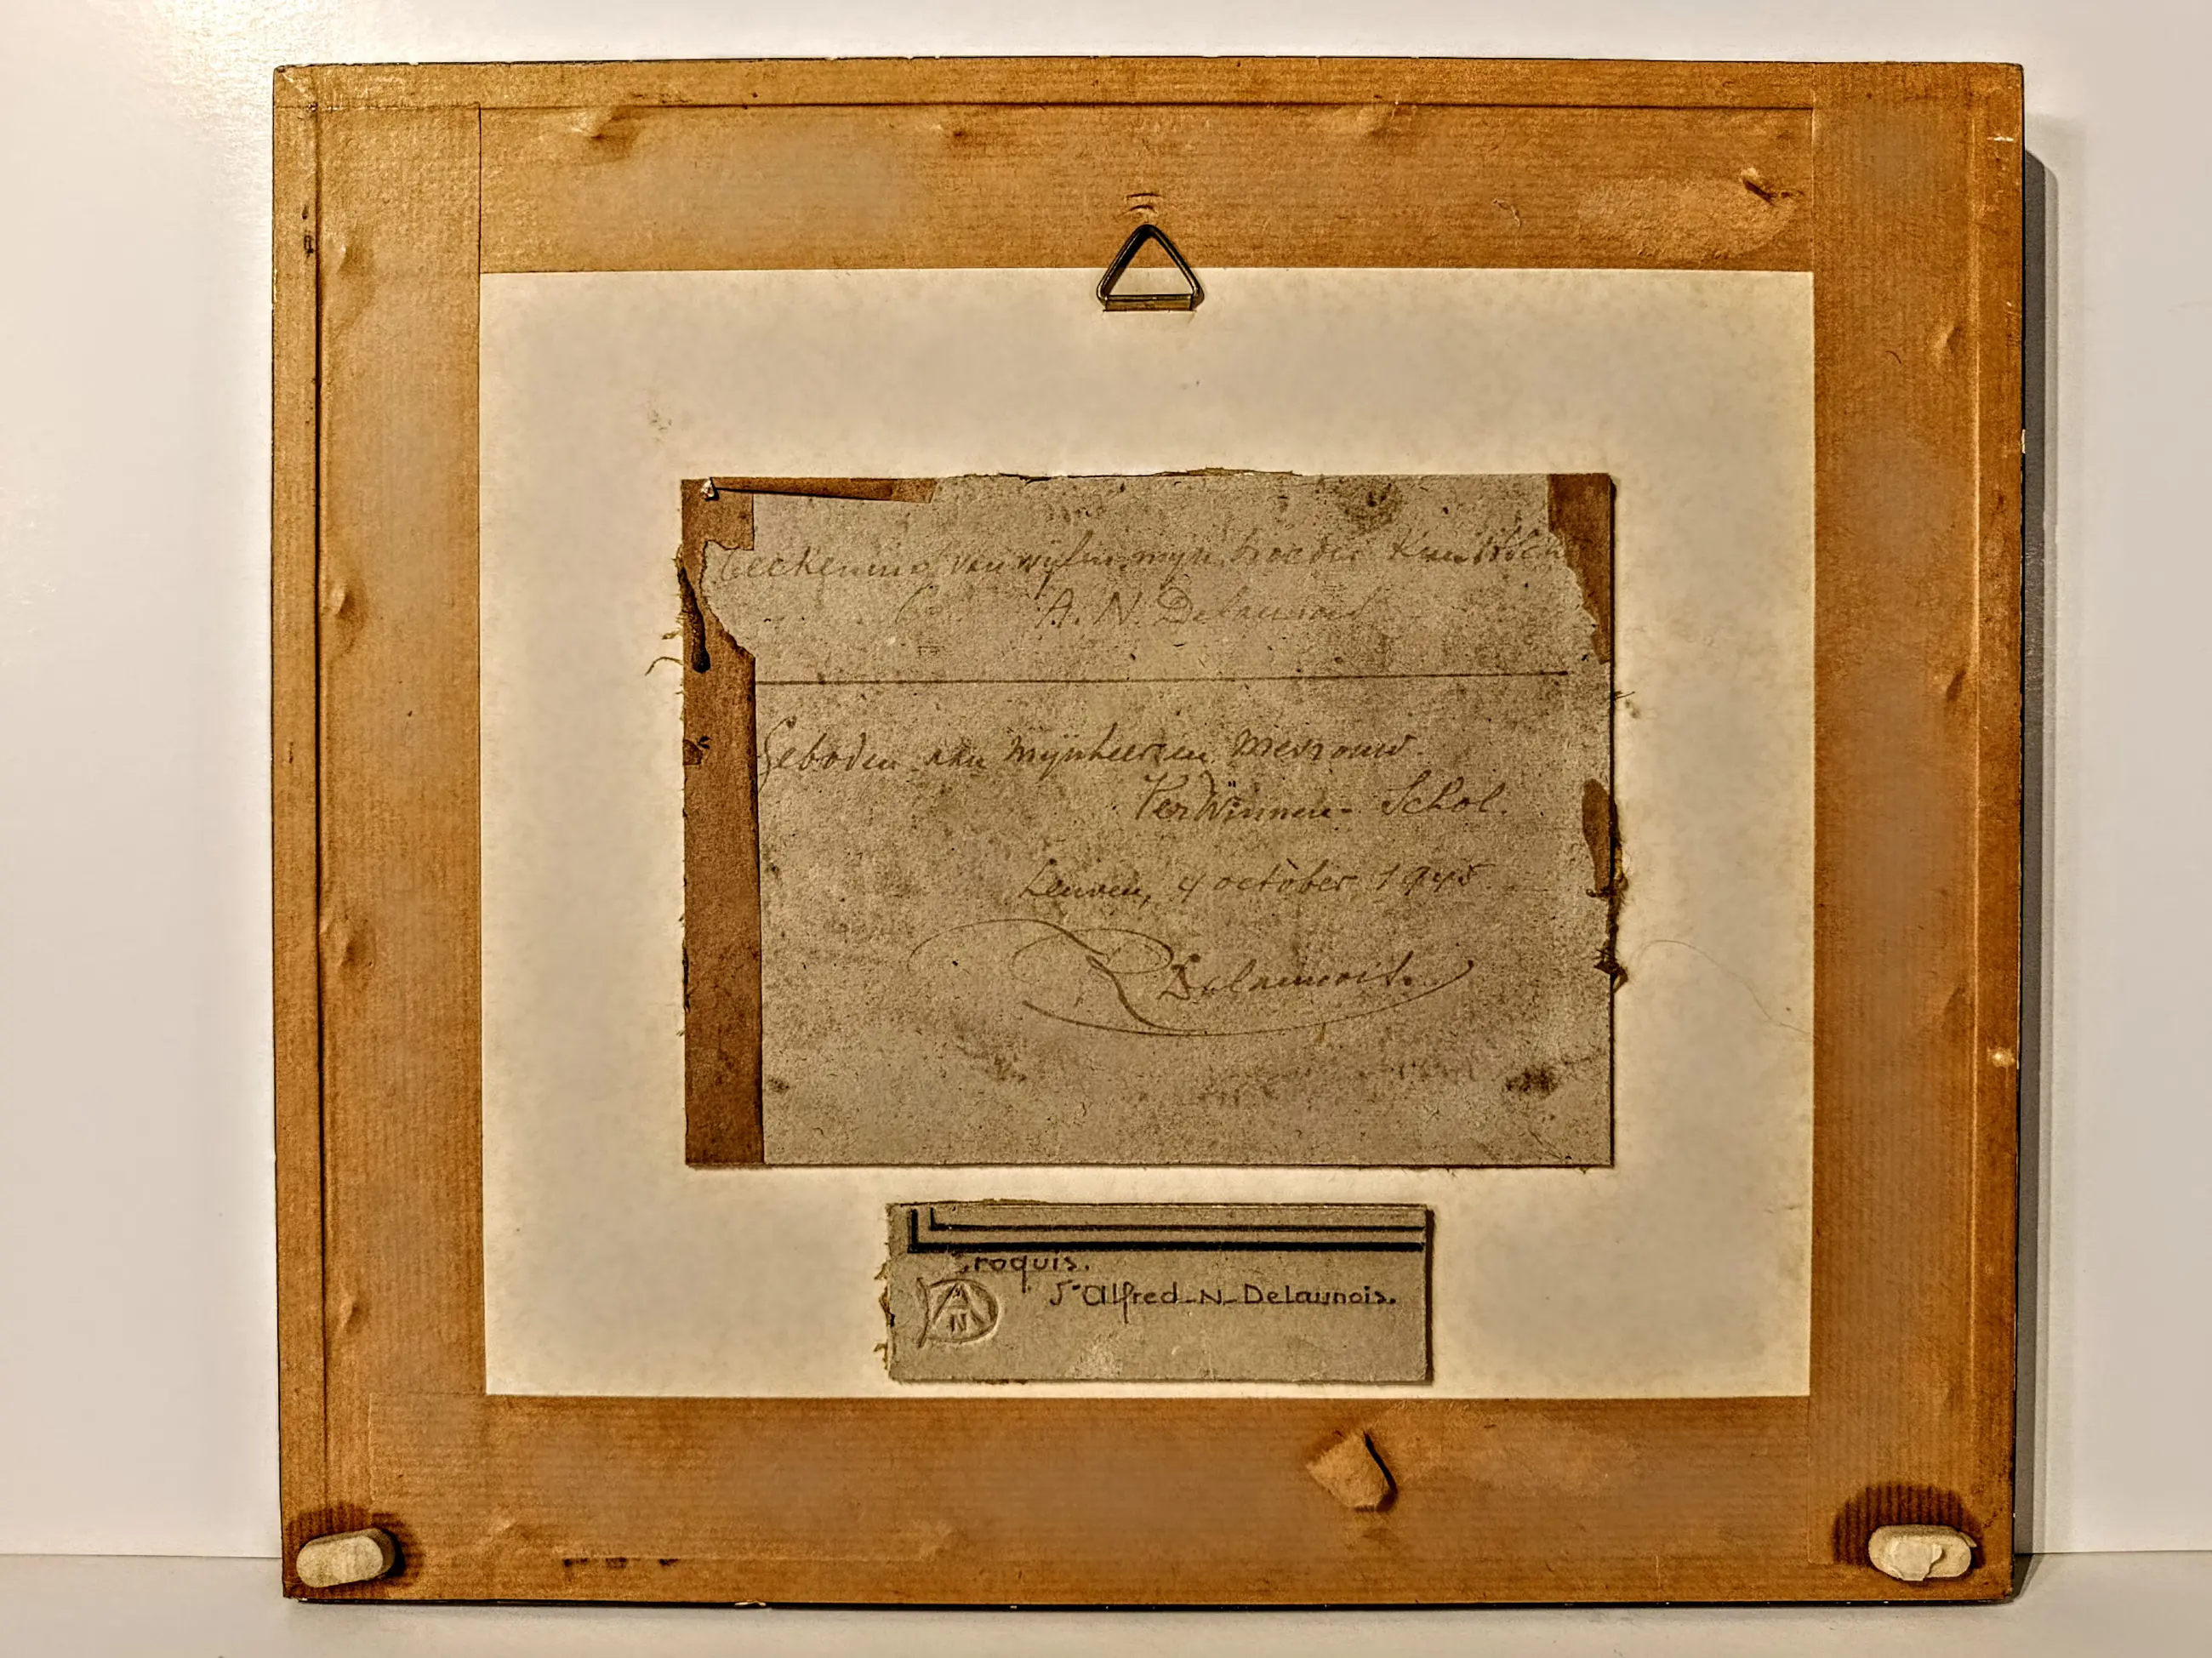 Teekening van wijlen mijn broeder
A. N. Delaunois
Geboden aan Mijnheer en Mevrouw
VerWinnen - Schol.
Leuven, 4 october 1945.
R Delaunois.
Croquis.
Alfred-N-Delaunois.
AN